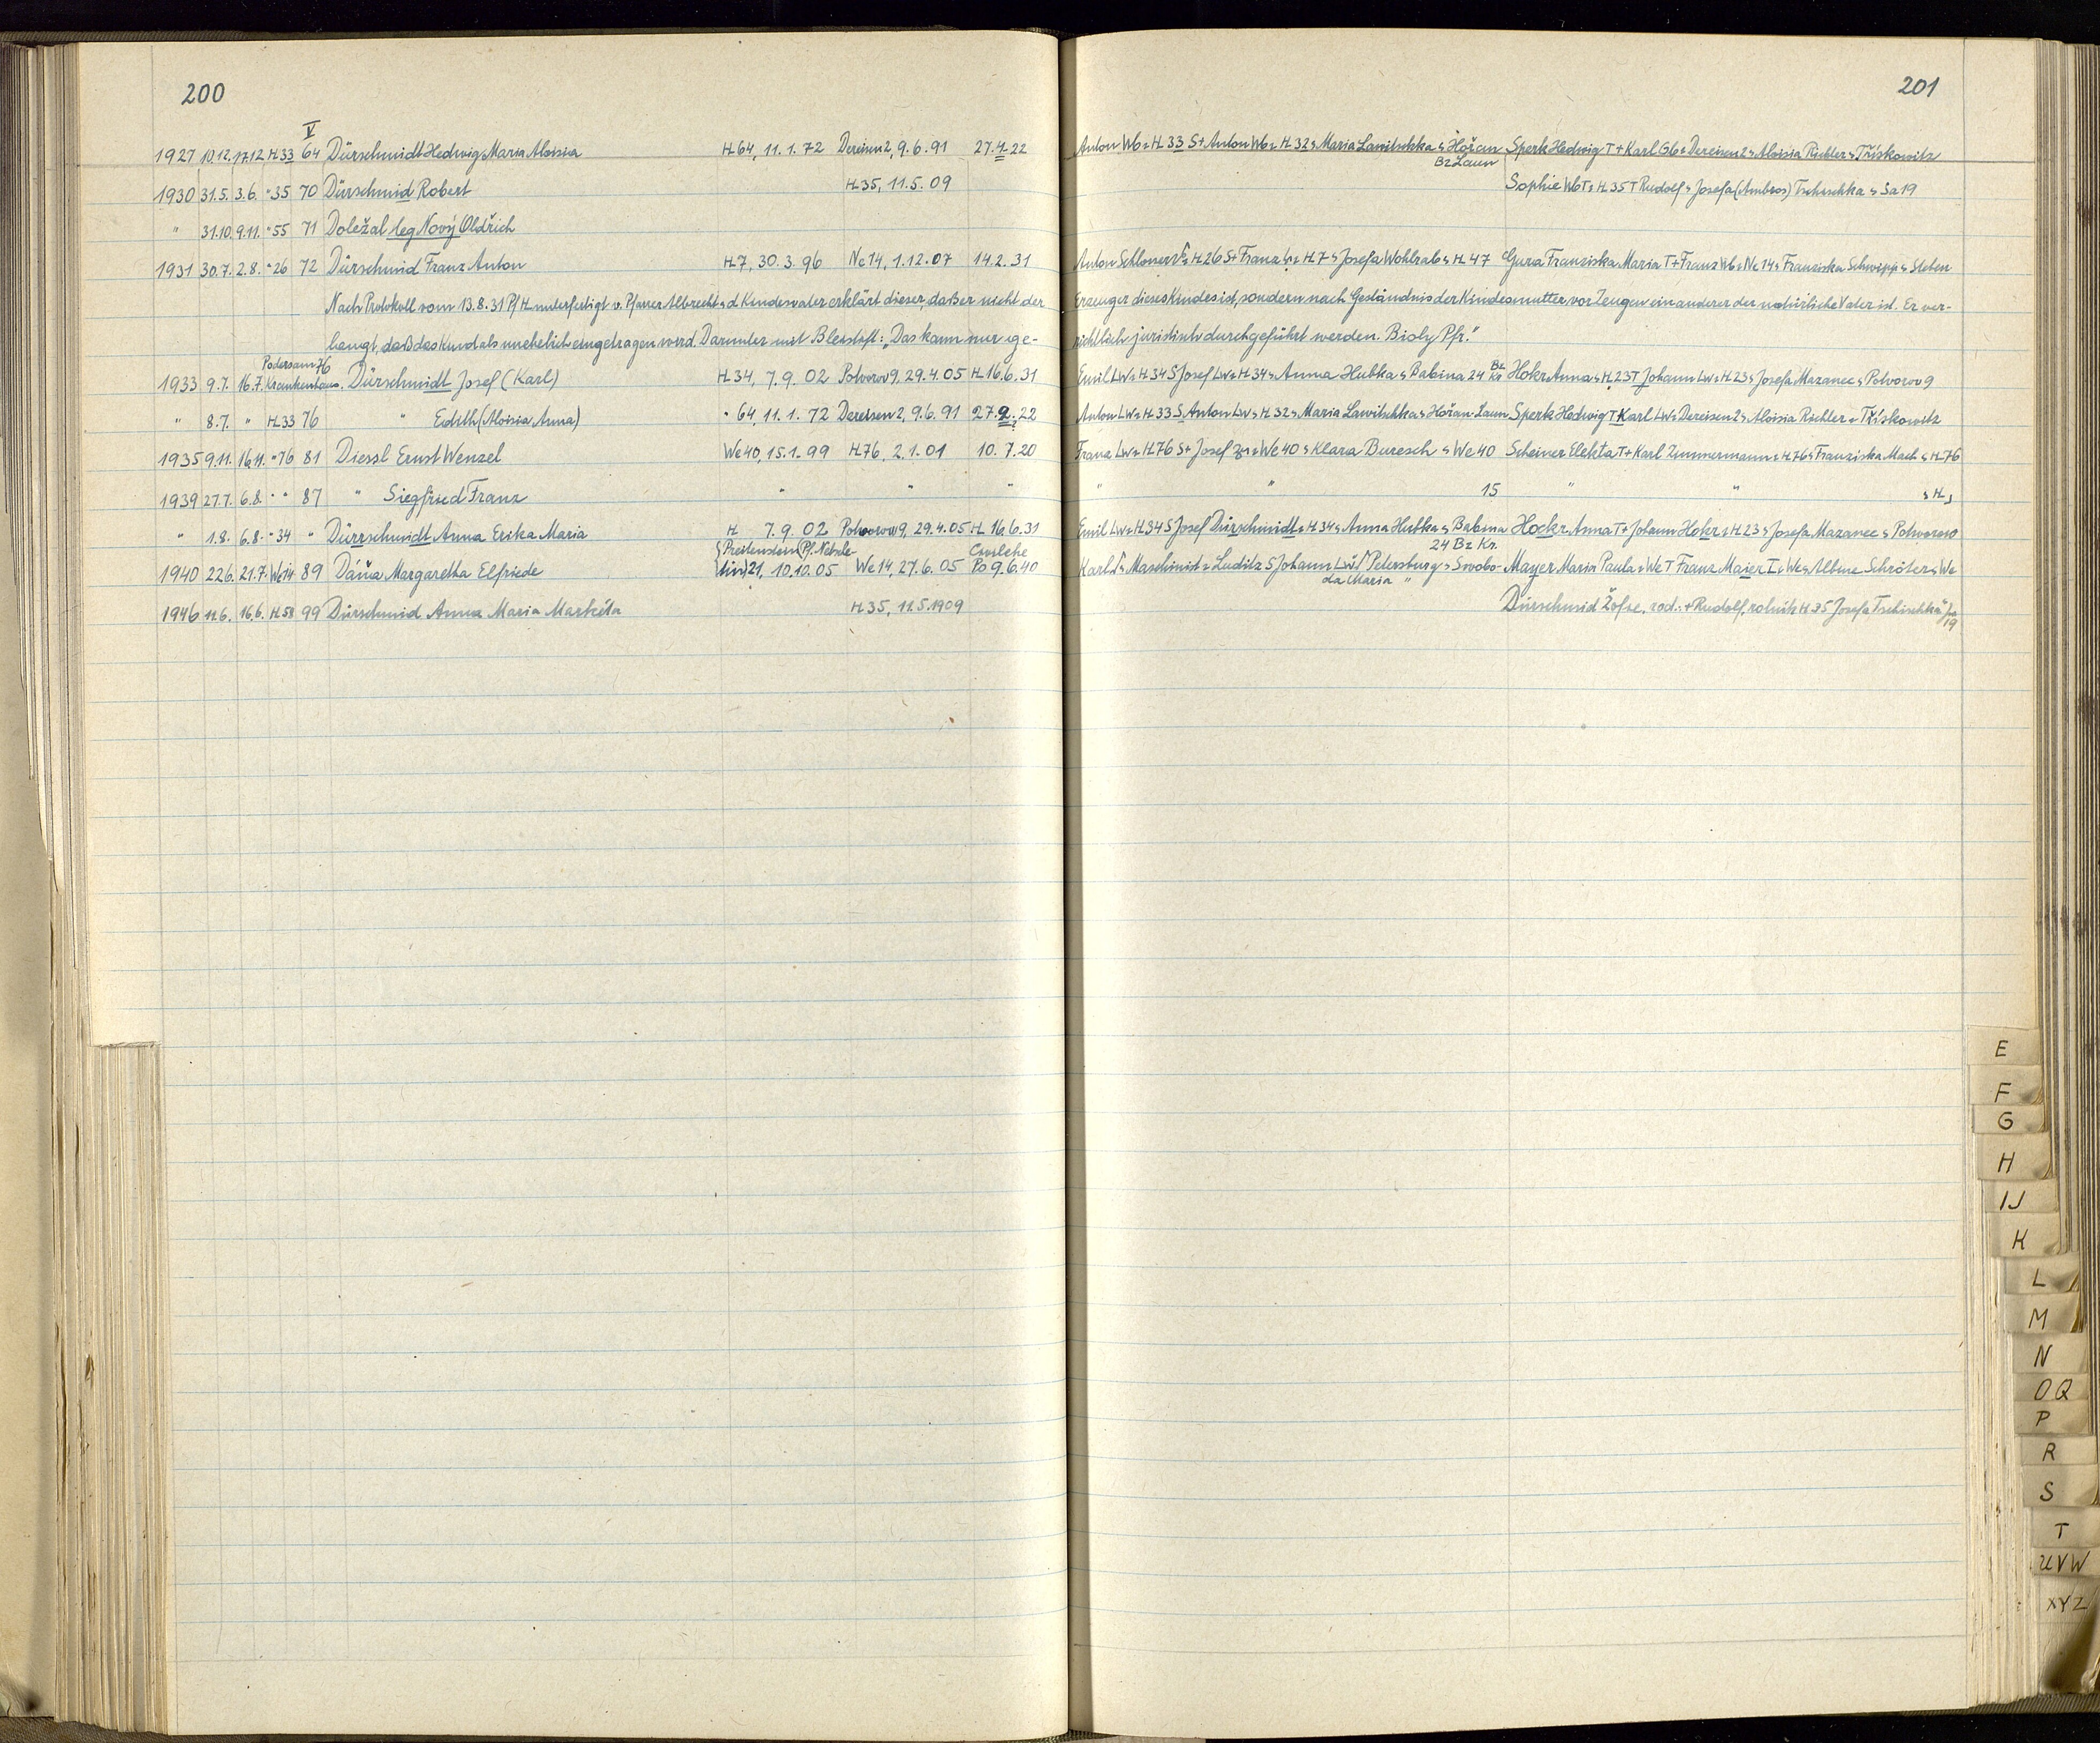 200
201
V
1927 10.12. 17.12 H.33 64 Dürschmidt Hedwig Maria Aloisia H.64, 11.1.72 Dereisen 2, 9.6.91 27.4.22 Anton Wb H.33 S+Anton Wb H.32 Maria Lawitschka Hořan Sperk Hedwig T+Karl Gb Dereisen 2 Aloisia Richler Třískowitz
Bz Laun
1930 31.5. 3.6. " 35 70 Dürschmid Robert H.35, 11.5.09 Sophie Wb T H.35 T Rudolf Josefa (Ambros) Tschischka Sa 19
" 31.10. 9.11. " 55 71 Doležal leg Nový Oldřich
1931 30.7. 2.8. " 26 72 Dürschmid Franz Anton H.7, 30.3.96 Ne 14, 1.12.07 14.2.31 Anton H.26 S+Franz H.7 Josefa Wohlrab H.47 Gura Franziska Maria T+Franz Wb Ne 14 Franziska Schwipp Steben
Nach Protokoll vom 13.8.31 Pf H unterfertigt v. Pfarrer Albrecht u d Kindesvater erklärt dieser, daß er nicht der Erzeuger dieses Kindes ist, sondern nach Geständnis der Kindesmutter vor Zeugen ein anderer der natürliche Vater ist. Er ver-
langt, daß das Kind als unehelich eingetragen werd. Darunter mit Bleistift: „Das kann nur ge- richtlich juristisch durchgeführt werden. Bioly Pfr."
Podersam 76
1933 9.7. 16.7. Krankenhaus. Dürschmidt Josef (Karl) H.34, 7.9.02 Potvorov 9, 29.4.05 H.16.6.31 Emil LW H.34 S Josef LW H.34 Anna Hubka Babina 24 Bz Kr Hokr Anna H.23 T Johann LW H.23 Josefa Mazanec Potvorov 9
" 8.7. " H.33 76 " Edith (Aloisia Anna) " 64, 11.1.72 Dereisen 2, 9.6.91 27.2.22 Anton LW H.33 S Anton LW H.32 Maria Lawitschka Hořan Laun Sperk Hedwig T Karl LW Dereisen 2 Aloisia Richler Třískowitz
1935 9.11. 16.11. " 76 81 Diessl Ernst Wenzel We 40, 15.1.99 H.76, 2.1.01 10.7.20 Franz LW H.76 S+Josef We 40 Klara Buresch We 40 Scheiner Elekta T+Karl Zimmermann H.76 Franziska Mach H.76
1939 27.7. 6.8. " " 87 " Siegfried Franz " " " " " 15 " " H
" 1.8. 6.8. " 34 " Dürrschmidt Anna Erika Maria H 7.9.02 Potvorow 9, 29.4.05 H 16.6.31 Emil LW H.34 S Josef Dürschmidt H.34 Anna Hubka Babina Hockr Anna T+Johann Hokr H.23 Josefa Mazanec Potvorow
24 Bz Kr.
Preitenstein (Pf. Netschetin) Conlehe
1940 22.6. 21.7. We 14 89 Dáňa Margaretha Elfriede 21, 10.10.05 We 14, 27.6.05 Po 9.6.40 Karl Maschinist Luditz S Johann Petersburg Swobo- Mayer Maria Paula We T Franz Maier I We Albine Schröter We
da Maria "
1946 11.6. 16.6. H.58 99 Dürschmid Anna Maria Markéta H.35, 11.5.1909 Dürschmid Žofie, rod.: +Rudolf, rolník H.35 Josefa Tschischka
19
E
F
G
H
IJ
K
L
M
N
OQ
P
R
S
T
UVW
XYZ